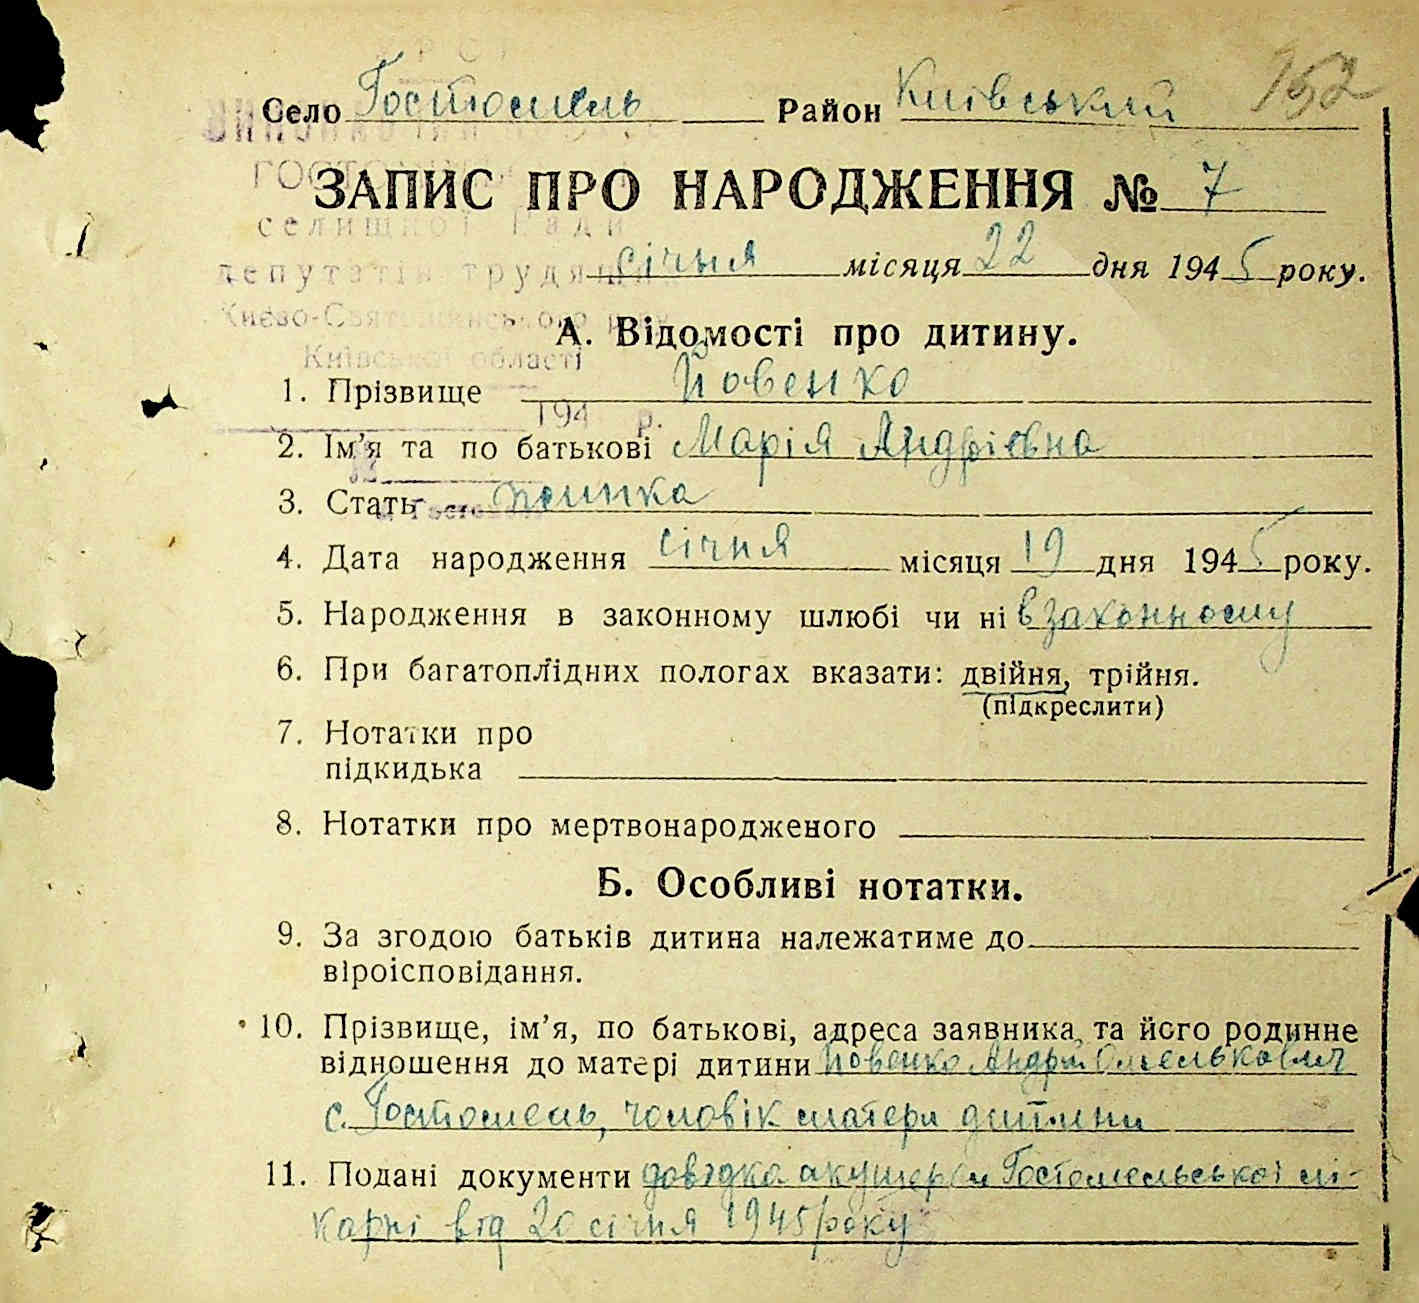 152
Село Гостомель Район Київський
ЗАПИС ПРО НАРОДЖЕННЯ № 7
січня місяця 22 дня 1945 року.
А. Відомості про дитину.
1. Прізвище Йовенко
2. Ім'я та по батькові Марія Андріївна
3. Стать жінка
4. Дата народження січня місяця 19 дня 1945 року.
5. Народження в законному шлюбі чи ні в законному
6. При багатоплідних пологах вказати: двійня, трійня.
(підкреслити)
7. Нотатки про
підкидька
8. Нотатки про мертвонародженого
Б. Особливі нотатки.
9. За згодою батьків дитина належатиме до
віроісповідання.
10. Прізвище, ім'я, по батькові, адреса заявника, та його родинне
відношення до матері дитини Йовенко Андрій Омелькович
с. Гостомель, чоловік матери дитини
11. Подані документи довідка акушерки Гостомельської лі-
карні від 20 січня 1945 року
селищної Ради
депутатів трудящих
Києво-Святошинського р-ну
Київської області
194 р.